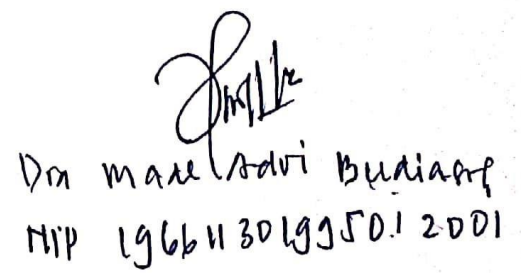 Dra Made Advi Budiasni
NIP 196611301995012001